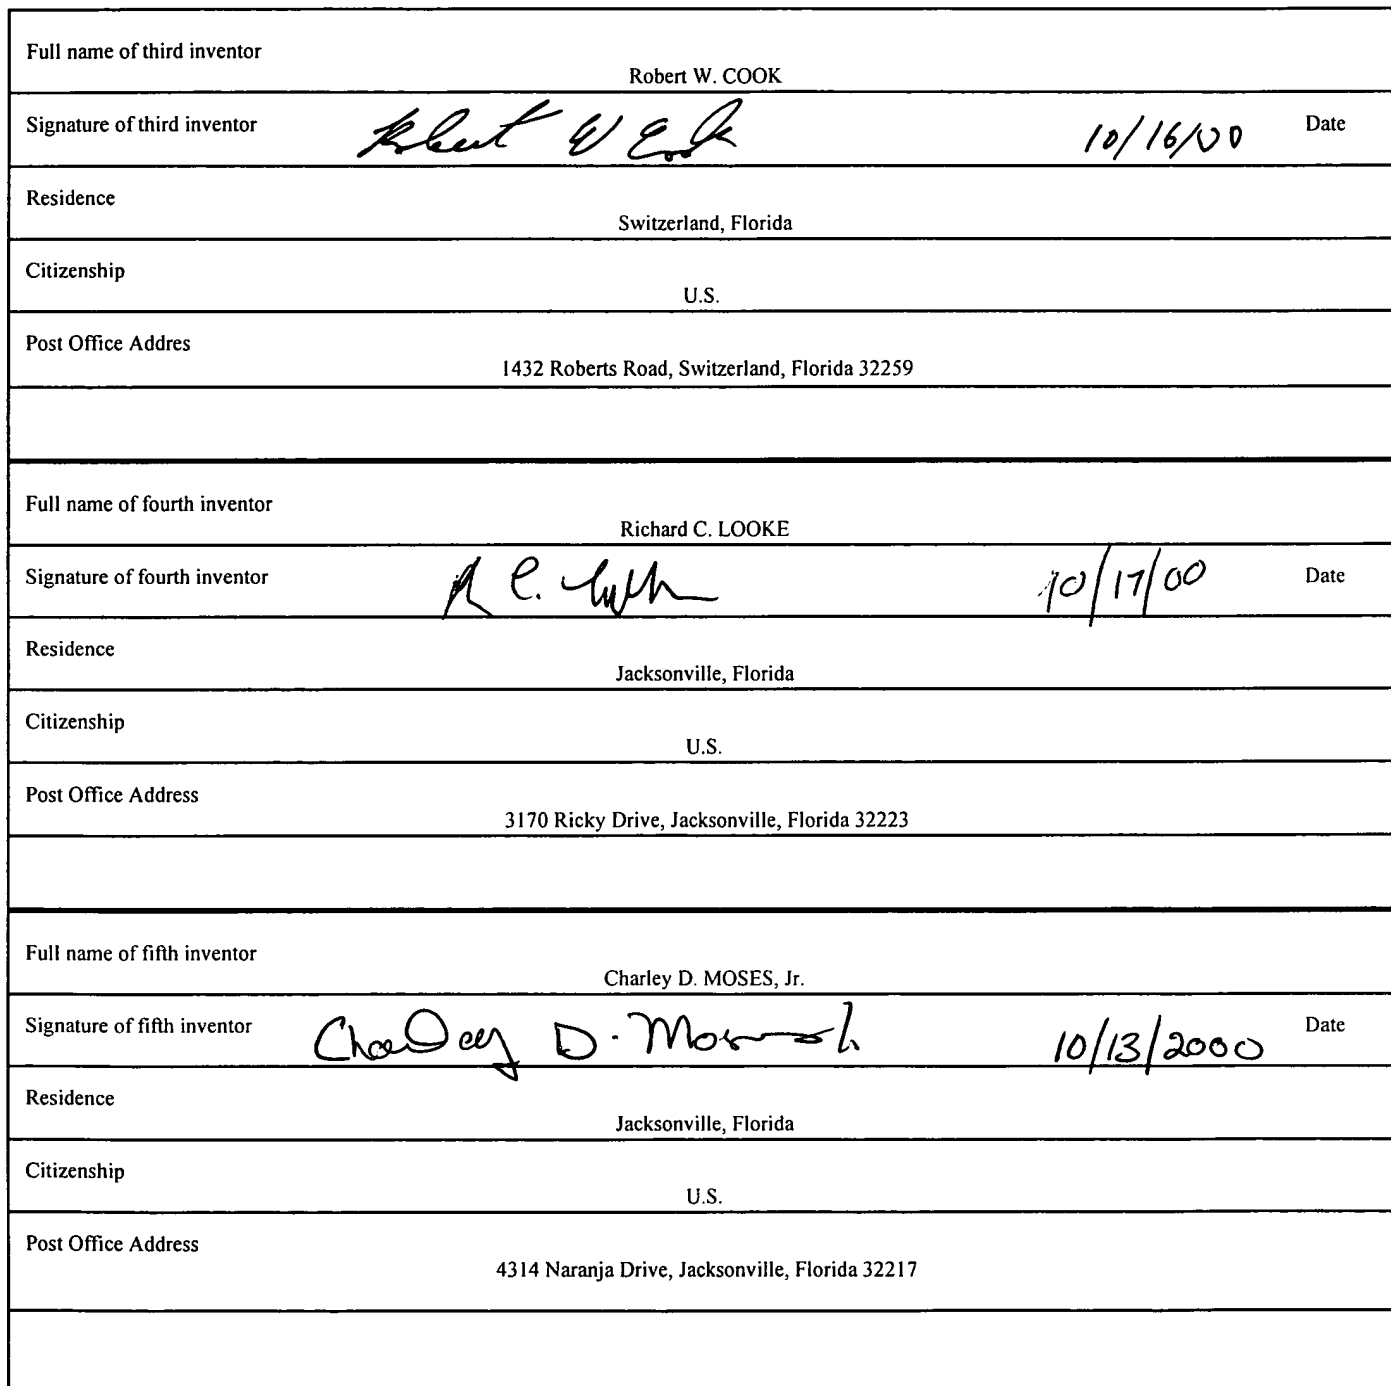 Full name of third inventor
Robert W. COOK
Signature of third inventor Robert W Cook 10/16/00 Date
Residence
Switzerland, Florida
Citizenship
U.S.
Post Office Addres
1432 Roberts Road, Switzerland, Florida 32259
Full name of fourth inventor
Richard C. LOOKE
Signature of fourth inventor R C. 10/17/00 Date
Residence
Jacksonville, Florida
Citizenship
U.S.
Post Office Address
3170 Ricky Drive, Jacksonville, Florida 32223
Full name of fifth inventor
Charley D. MOSES, Jr.
Signature of fifth inventor Charley D. Moses Jr. 10/13/2000 Date
Residence
Jacksonville, Florida
Citizenship
U.S.
Post Office Address
4314 Naranja Drive, Jacksonville, Florida 32217